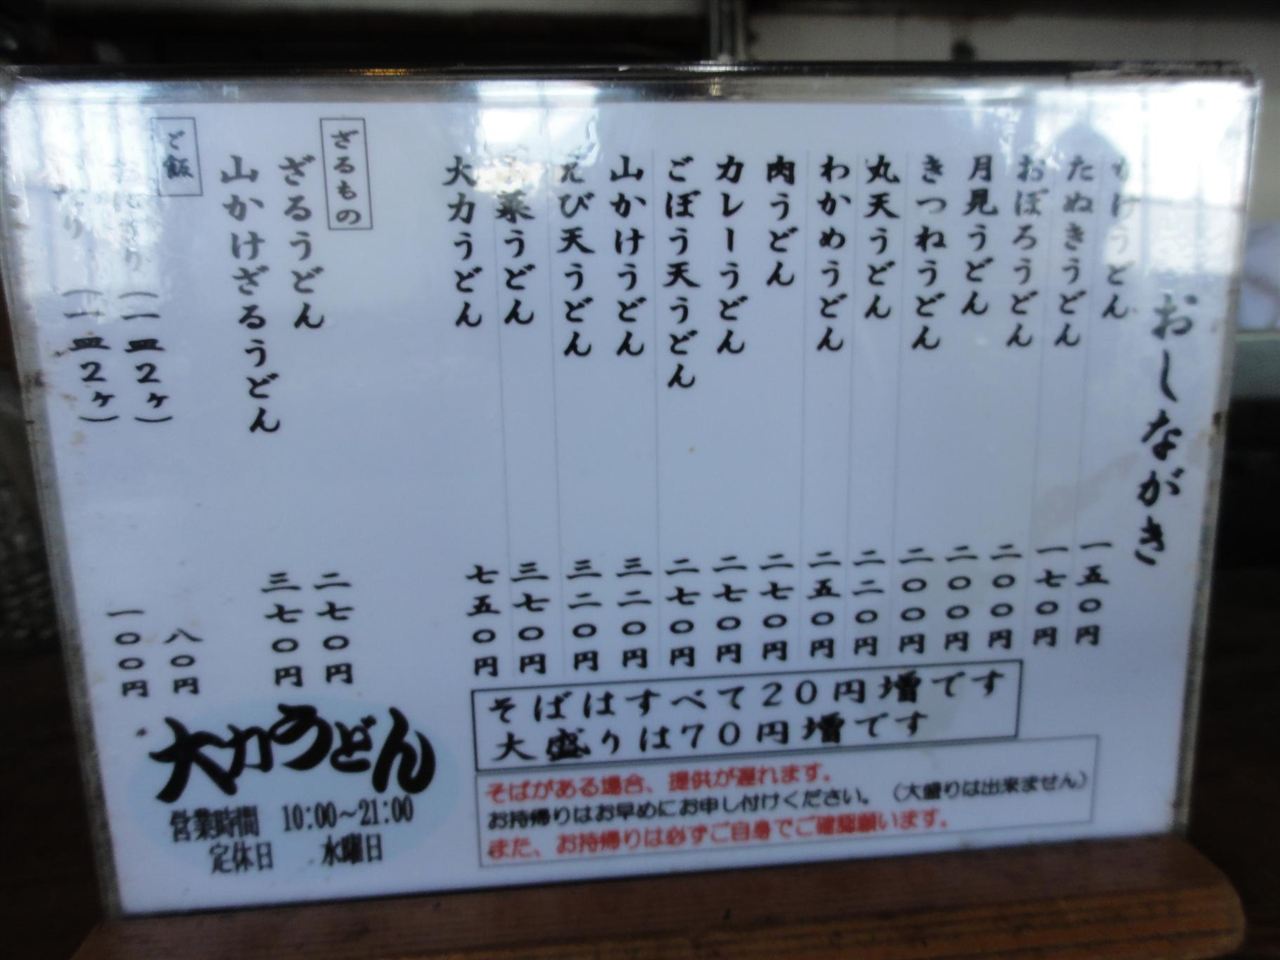 おしながき
かけうどん 一五〇円
たぬきうどん 一七〇円
おぼろうどん 二〇〇円
月見うどん 二〇〇円
きつねうどん 二〇〇円
丸天うどん 二二〇円
わかめうどん 二五〇円
肉うどん 二七〇円
カレーうどん 二七〇円
ごぼう天うどん 二七〇円
山かけうどん 三二〇円
えび天うどん 三二〇円
菜うどん 三七〇円
大力うどん 七五〇円
ざるもの
ざるうどん 二七〇円
山かけざるうどん 三七〇円
ご飯
おにぎり (一皿2ヶ) 八〇円
(一皿2ヶ) 一〇〇円
そばはすべて20円増です
大盛りは70円増です
そばがある場合、提供が遅れます。
お持帰りはお早めにお申し付けください。(大盛りは出来ません)
また、お持帰りは必ずご自身でご確認願います。
大力うどん
営業時間 10:00~21:00
定休日 水曜日